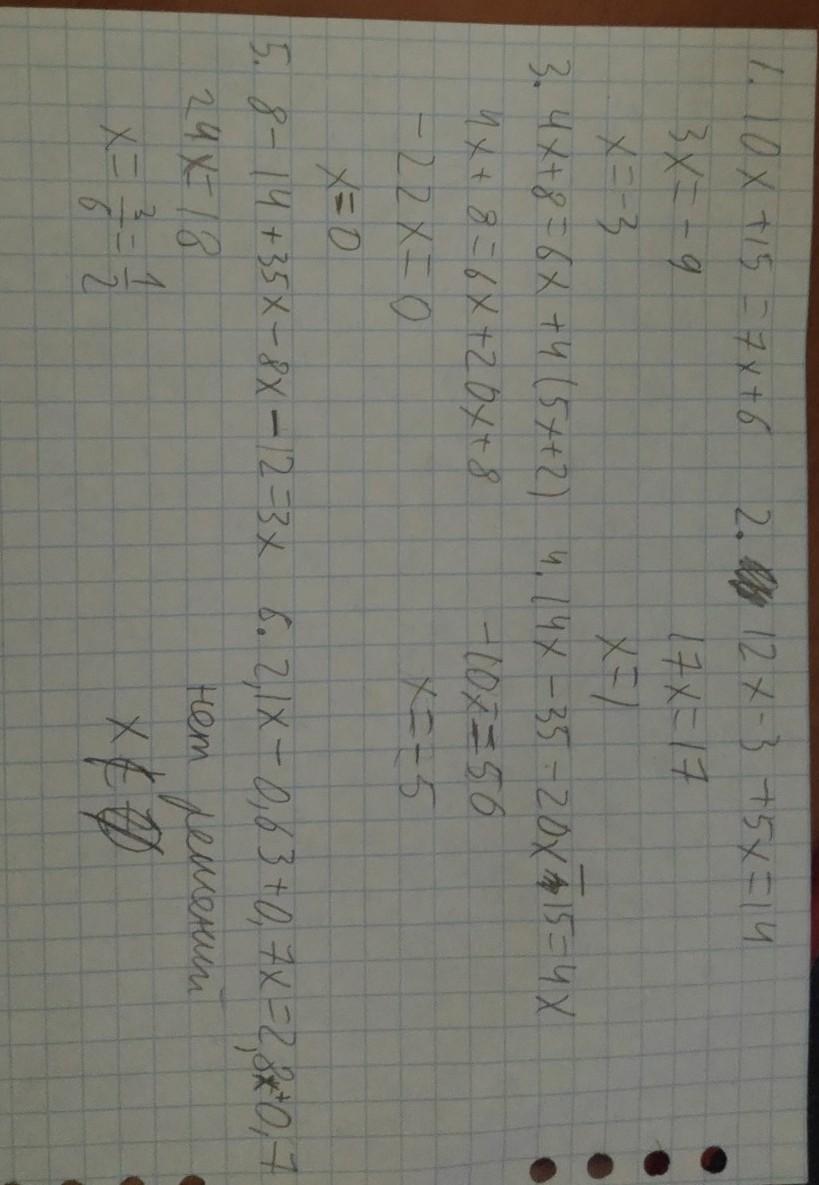 1. 10x + 15 = 7x + 6
3x = -9
x = -3
2. 12x - 3 + 5x = 14
17x = 17
x = 1
3. 4x + 8 = 6x + 4(5x+2)
4x + 8 = 6x + 20x + 8
-22x = 0
x = 0
4. 14x - 35 - 20x - 15 = 4x
-10x = 50
x = -5
5. 8 - 14 + 35x - 8x - 12 = 3x
24x = 18
x = 3/6 = 1/2
6. 2,1x - 0,63 + 0,7x = 2,8x + 0,7
нет решений
x